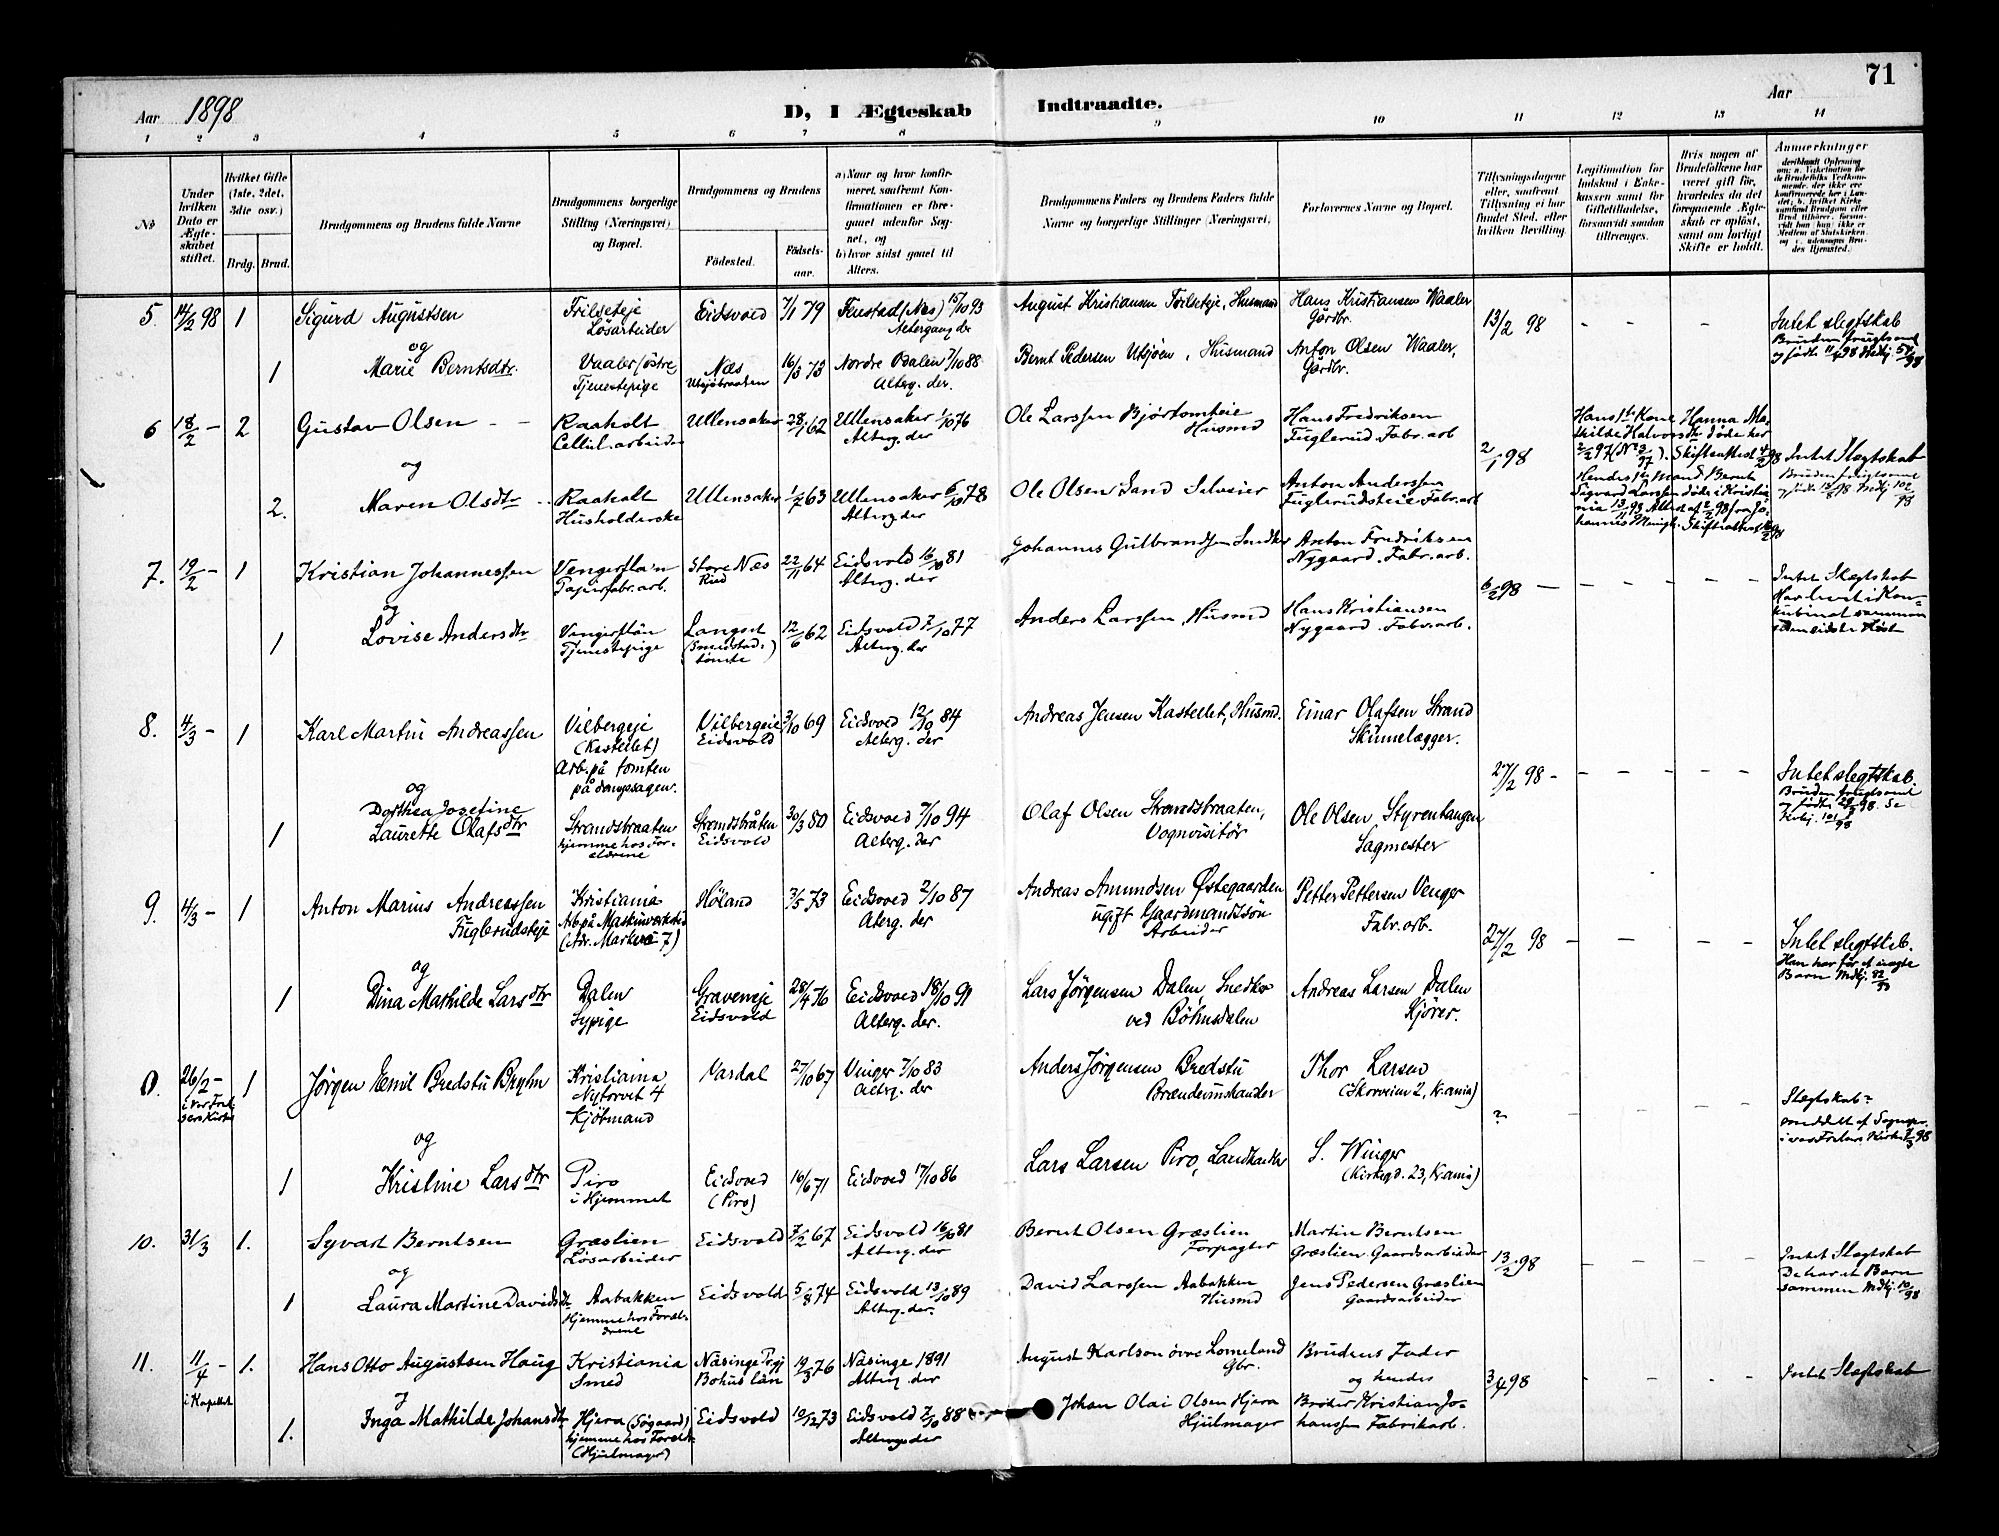 71
Aar 1898
D, I Ægteskab Indtraadte.
Aar
1 2 3 4 5 6 7 8 9 10 11 12 13 14
No
Under hvilken Dato er Ægteskabet stiftet.
Hvilket Gifte (1ste, 2det, 3die osv.)
Brdg. Brud.
Brudgommens og Brudens fulde Navne
Brudgommens borgerlige Stilling (Næringsvei) og Bopæl.
Brudgommens og Brudens
Fødested. Fødsels-aar.
a) Naar og hvor konfirmeret, saafremt Konfirmationen er foregaaet udenfor Sognet, og
b) hvor sidst gaaet til Alters.
Brudgommens Faders og Brudens Faders fulde Navne og borgerlige Stillinger (Næringsvei).
Forlovernes Navne og Bopæl.
Tillysningsdagene eller, saafremt Tillysning ei har fundet Sted, efter hvilken Bevilling.
Legitimation for Indskud i Enkekassen samt for Giftetilladelse, forsaavidt saadan tiltrænges.
Hvis nogen af Brudefolkene har været gift før, hvorledes da det foregaaende Ægteskab er opløst, samt om lovligt Skifte er holdt.
Anmærkninger
5. 14/2 98 1 Sigurd Augustsen Frilseteje Løsarbeider Eidsvold 7/1 79 Fenstad (Næs) 15/10 93 Altergang der August Kristiansen Frilseteje, Husmand Hans Kristiansen Waaler Gårdbr. 13/2 98 - - - Intet slegtskab
og
1 Marie Berntsdtr. Vaaler østre Tjenestepige Næs 16/3 73 Nordre Odalen 7/10 88 Alterg. der. Bernt Pedersen Utsjøen, Husmand Anton Olsen Waaler, Gårdbr.
6 18/2 - 2 Gustav Olsen - - Raaholt Cellul.arbeider Ullensaker 28/1 62 Ullensaker 1/10 76 Alterg. der Ole Larssen Bjørtomteie Husmd Hans Fredriksen Fuglerud Fabr.arb 2/1 98 Intet Slægtskab
og
2. Maren Olsdtr Raaholt Husholderske Ullensaker 1/2 63 Ullensaker 6/10 78 Alterg der Ole Olsen Sand Selveier Anton Anderssen Fuglerudsteie Fabr.arb
7. 19/2 - 1 Kristian Johannessen Vengerflaÿn Papirfabr.arb. Store Næs 22/11 64 Eidsvold 16/10 81 Alterg. der Johannes Gulbrandsen Anton Fredriksen Nygaard. Fabr.arb. 6/2 98 - - - Intet Slægtskab
og
1 Lovise Andersdtr Vengerflån Tjenestepige Langset 12/6 62 Eidsvold 7/10 77 Alterg. der Anders Larssen, Husmd Hans Kristiansen Nygaard. Fabr.arb.
8. 4/3 - 1 Karl Martin Andreassen Vilbergeje (Kastellet) Arb. på tomten på dampsagen. Vilbergeie Eidsvold 3/10 69 Eidsvold 12/10 84 Alterg. der Andreas Jensen Kastellet, Husmd. Einar Olafsen Strand Skinnelægger. 27/2 98 - - - Intet slegtskab.
og
1 Dorthea Josefine Laurette Olafsdtr Strandbraaten hjemme hos Forældrene Strandbråten Eidsvold 30/3 80 Eidsvold 7/10 94 Alterg. der Olaf Olsen Strandsbraaten, Vognvisitør Ole Olsen Styrentangen Sagmester
9. 4/3 - 1 Anton Marius Andreassen Fuglerudsteje Kristiania Arb på Maskinverksted (Adr. Markvei 7) Høland 3/5 73 Eidsvold 2/10 87 Alterg. der Andreas Amundsen Østegaarden ugift Gaardmandssøn Arbeider Petter Pettersen Venger Fabr.arb. 27/2 98 - - - Intet slegtskab.
Han har før et uægte Barn
og
1 Dina Mathilde Larsdtr Dalen Sypige Graveneje Eidsvold 28/4 76 Eidsvold 18/10 91 Alterg. der. Lars Jørgensen Dalen, Snedker ved Bøhnsdalen Andreas Larsen Dalen Kjører.
0. 26/2 - i Vor Frelsers Kirke 1 Jørgen Emil Bredstu Bryhn Kristiania Nytorvet 4 Kjøbmand Vardal 27/10 67 Vinger 7/10 83 Alterg. der Anders Jørgensen Bredstu Brændevinshandler Thor Larsen (Skovveien 2, Kr.ania) ? - - - Slegtskab?
og
1 Kristine Larsdtr Piro i Hjemmet Eidsvold (Piro) 16/6 71 Eidsvold 17/10 86 Lars Larsen Piro, Landhandler S. Winger (Kirkegd. 23, Kr.ania)
10. 31/3 1. Syvart Berntsen Græslien Løsarbeider Eidsvold 7/2 67 Eidsvold 16/10 81 Alterg. der Bernt Olsen Græslien Forpagter Martin Berntsen Græslien Gaardsarbeider 13/2 98 - - - Intet Slægtskab
De har et Barn sammen Mdkj. 10/98
og
1 Laura Martine Davidsdtr Aabakken Hjemme hos Forældrene Eidsvold 5/8 74 Eidsvold 13/10 89 Alterg. der. David Larssen Aabakken Husmd Jens Pedersen Græslien Gaardsarbeider
11. 11/4 - i Kapellet 1. Hans Otto Augustsen Haug Kristiania Smed Näsinge Prgj Bohus län 19/3 76 Näsinge 1891 Alterg. der August Karlson øvre Lomeland Gbr. Brudens Fader og hendes 3/4 98 - - - Intet Slægtskab
og
1. Inga Mathilde Johansdtr Hjera (Søgaard) hjemme hos Foreldr. (Hjulmager) Eidsvold 10/12 73 Eidsvold 7/10 88 Alterg. der Johan Olai Olsen Hjera Hjulmager Broder Kristian Johanssen Fabrikarb.